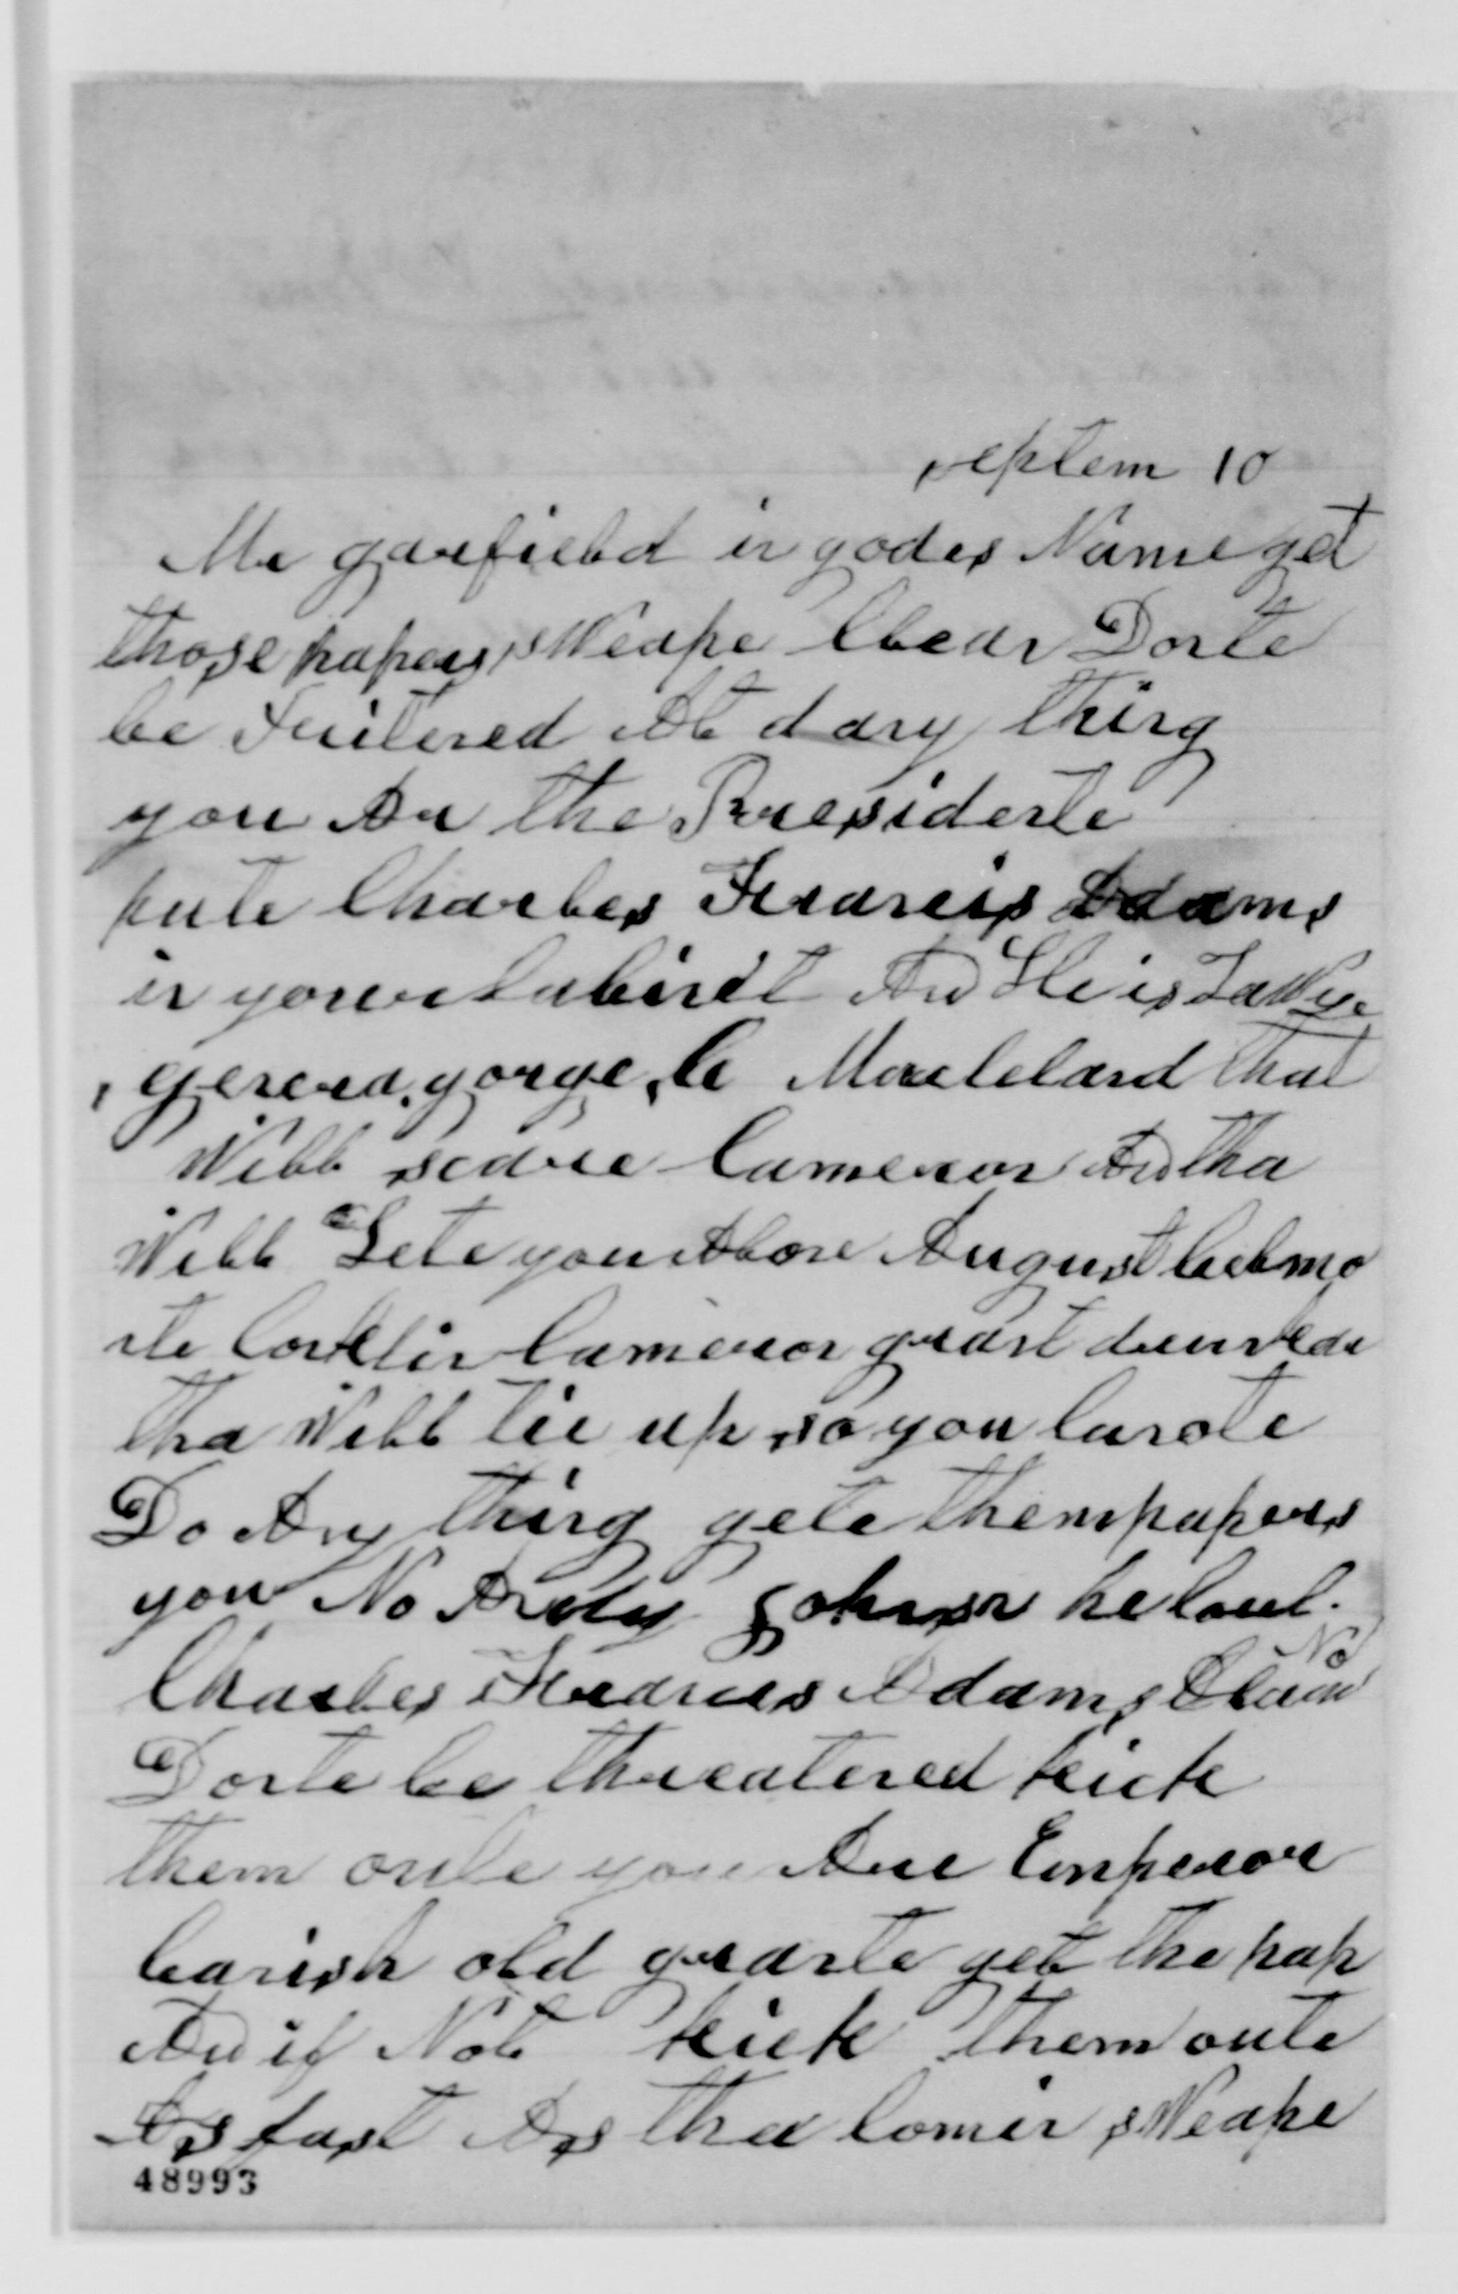 septem 10
Mr garfield in godes Name get
those papers sweape Clear Donte
be Futered At dany thing
you Ar the Presidente
pute Charles Francis Adams
in youre Cabinet And He is
genera gorge, B Macleland that
Will scare Cameron And tha
Will Lete you Alone August belmo
nte Conklin Cameron grant
tha Will tie up so you Canote
Do Any thing gete them papers
you No Andy Johnson he Cout.
Charles Francis Adams No
Donte be threatened kick
them oute you Are Emperor
banish old grante get the pap
And if Note kick them oute
As fast As tha Comin sweape
48993